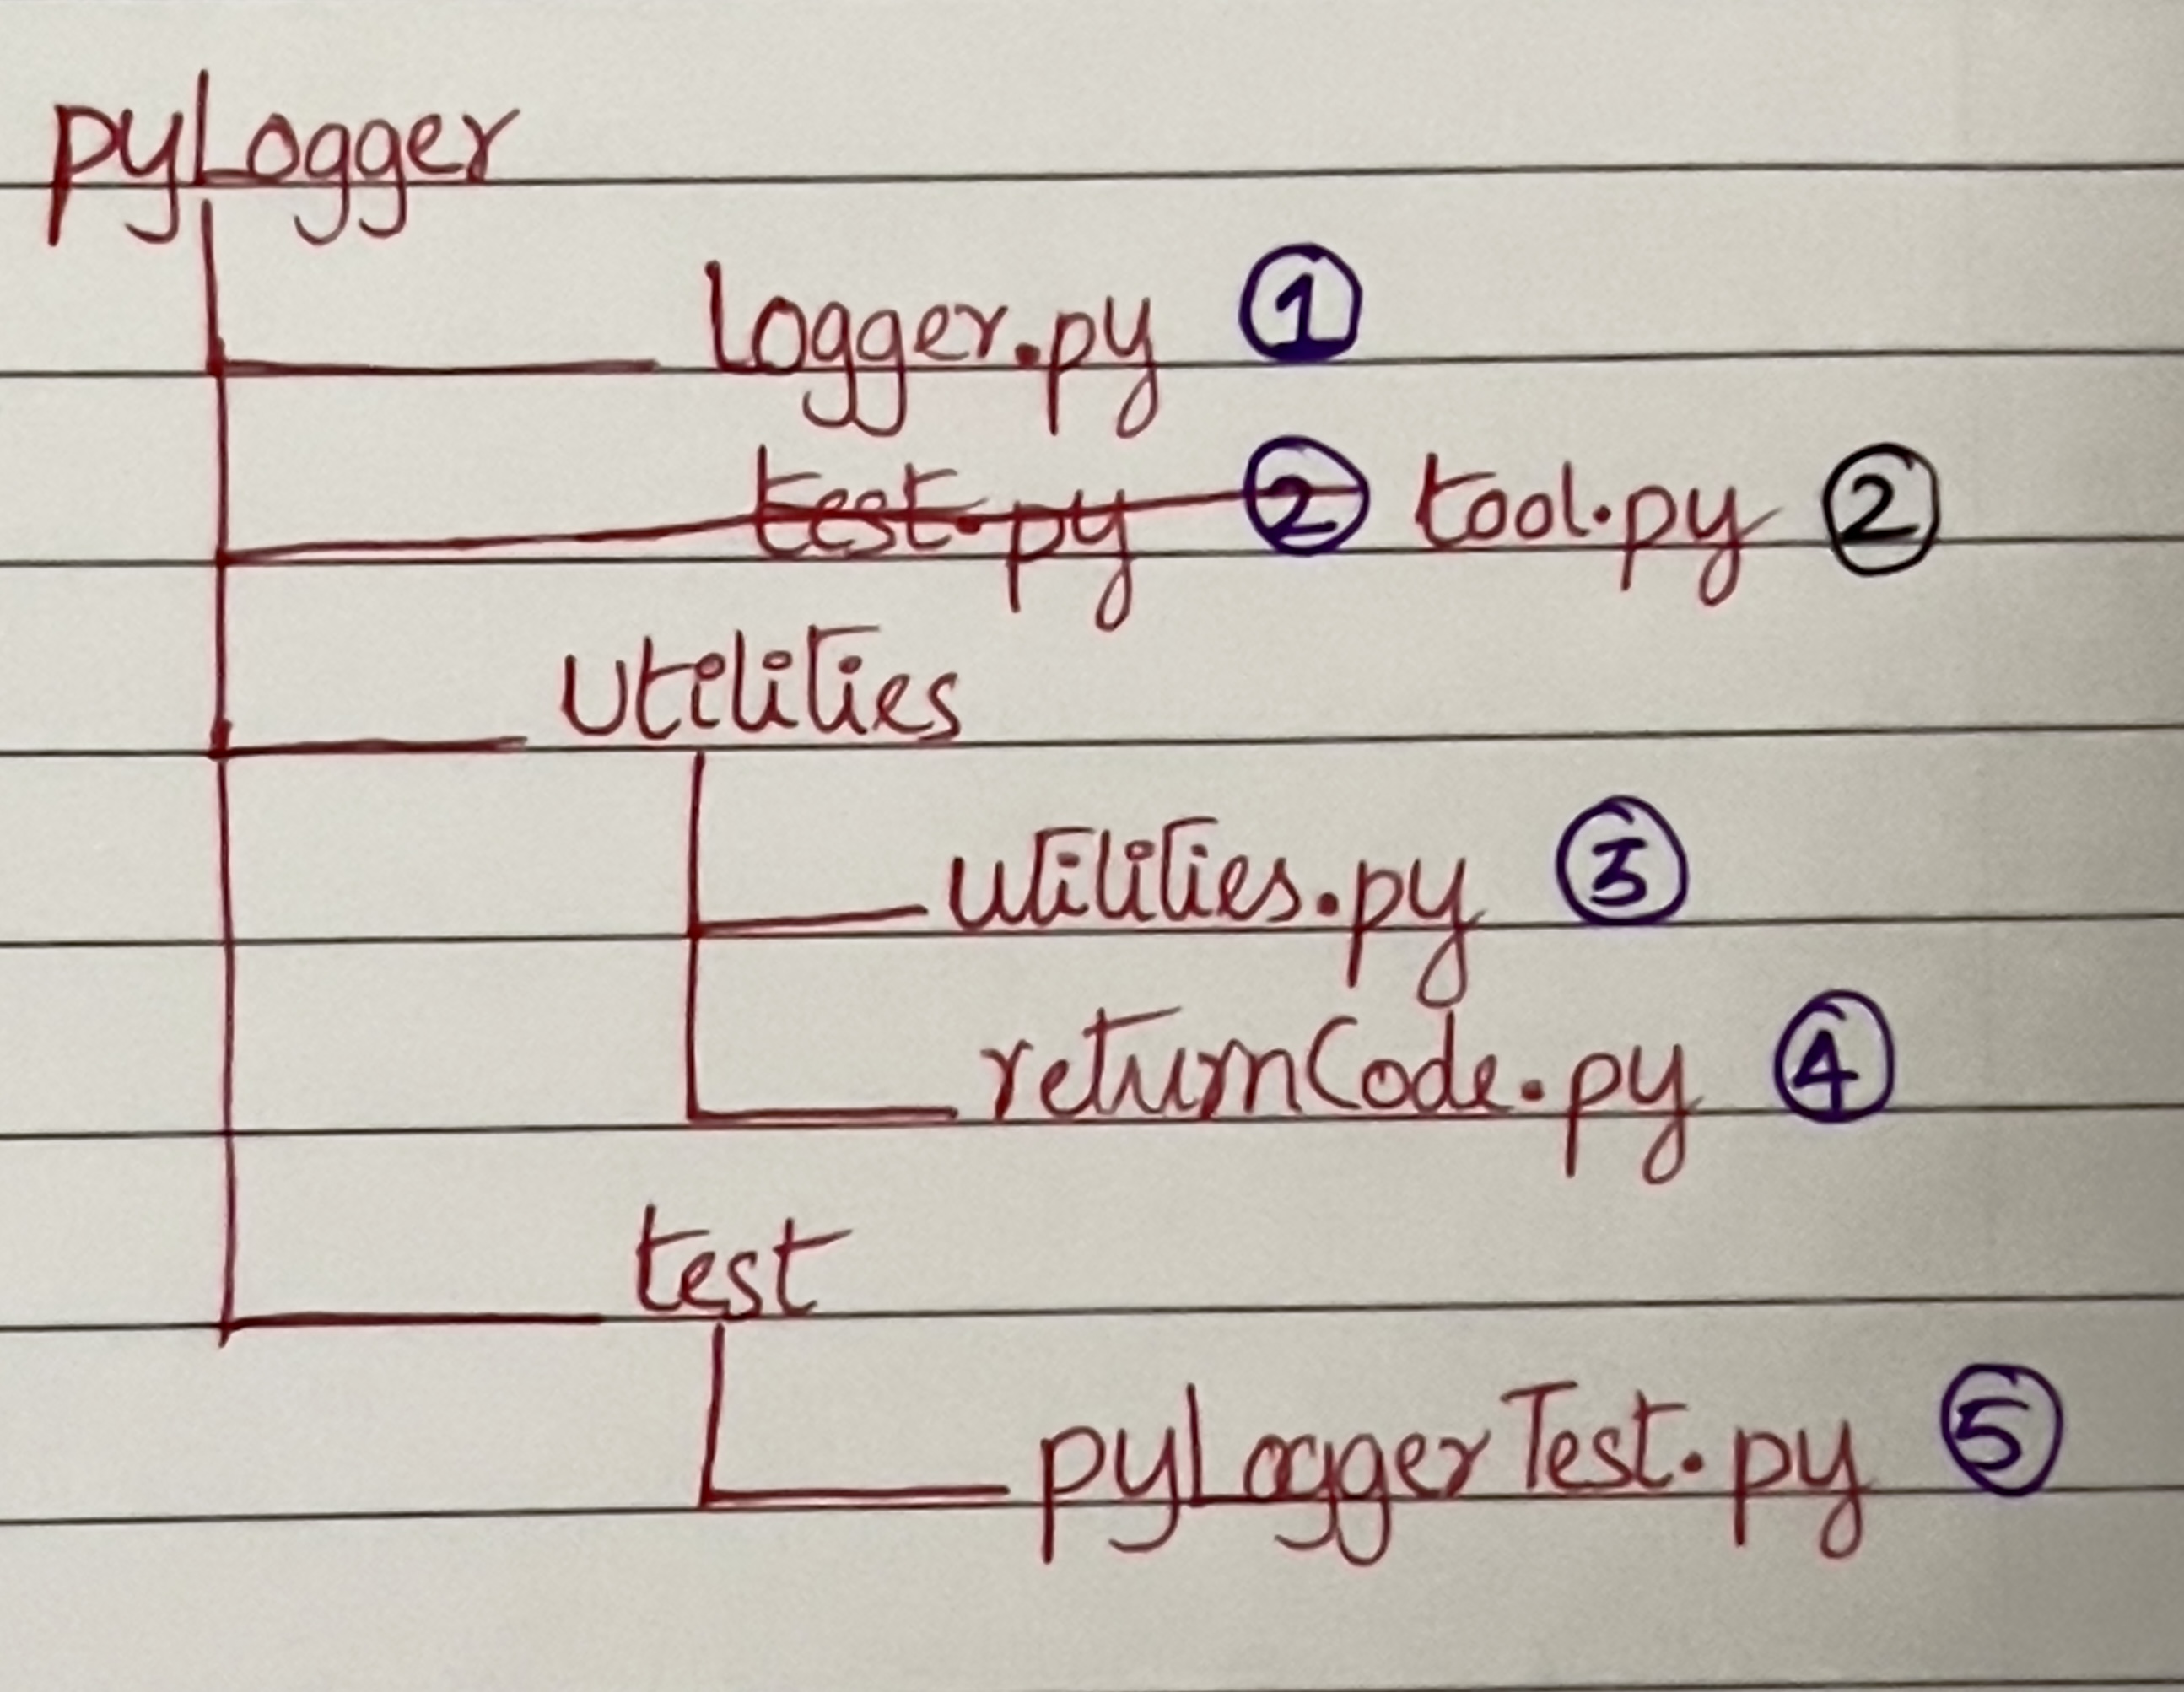 pyLogger
logger.py ①
test.py ② tool.py ②
utilities
utilities.py ③
returnCode.py ④
test
pyLoggerTest.py ⑤